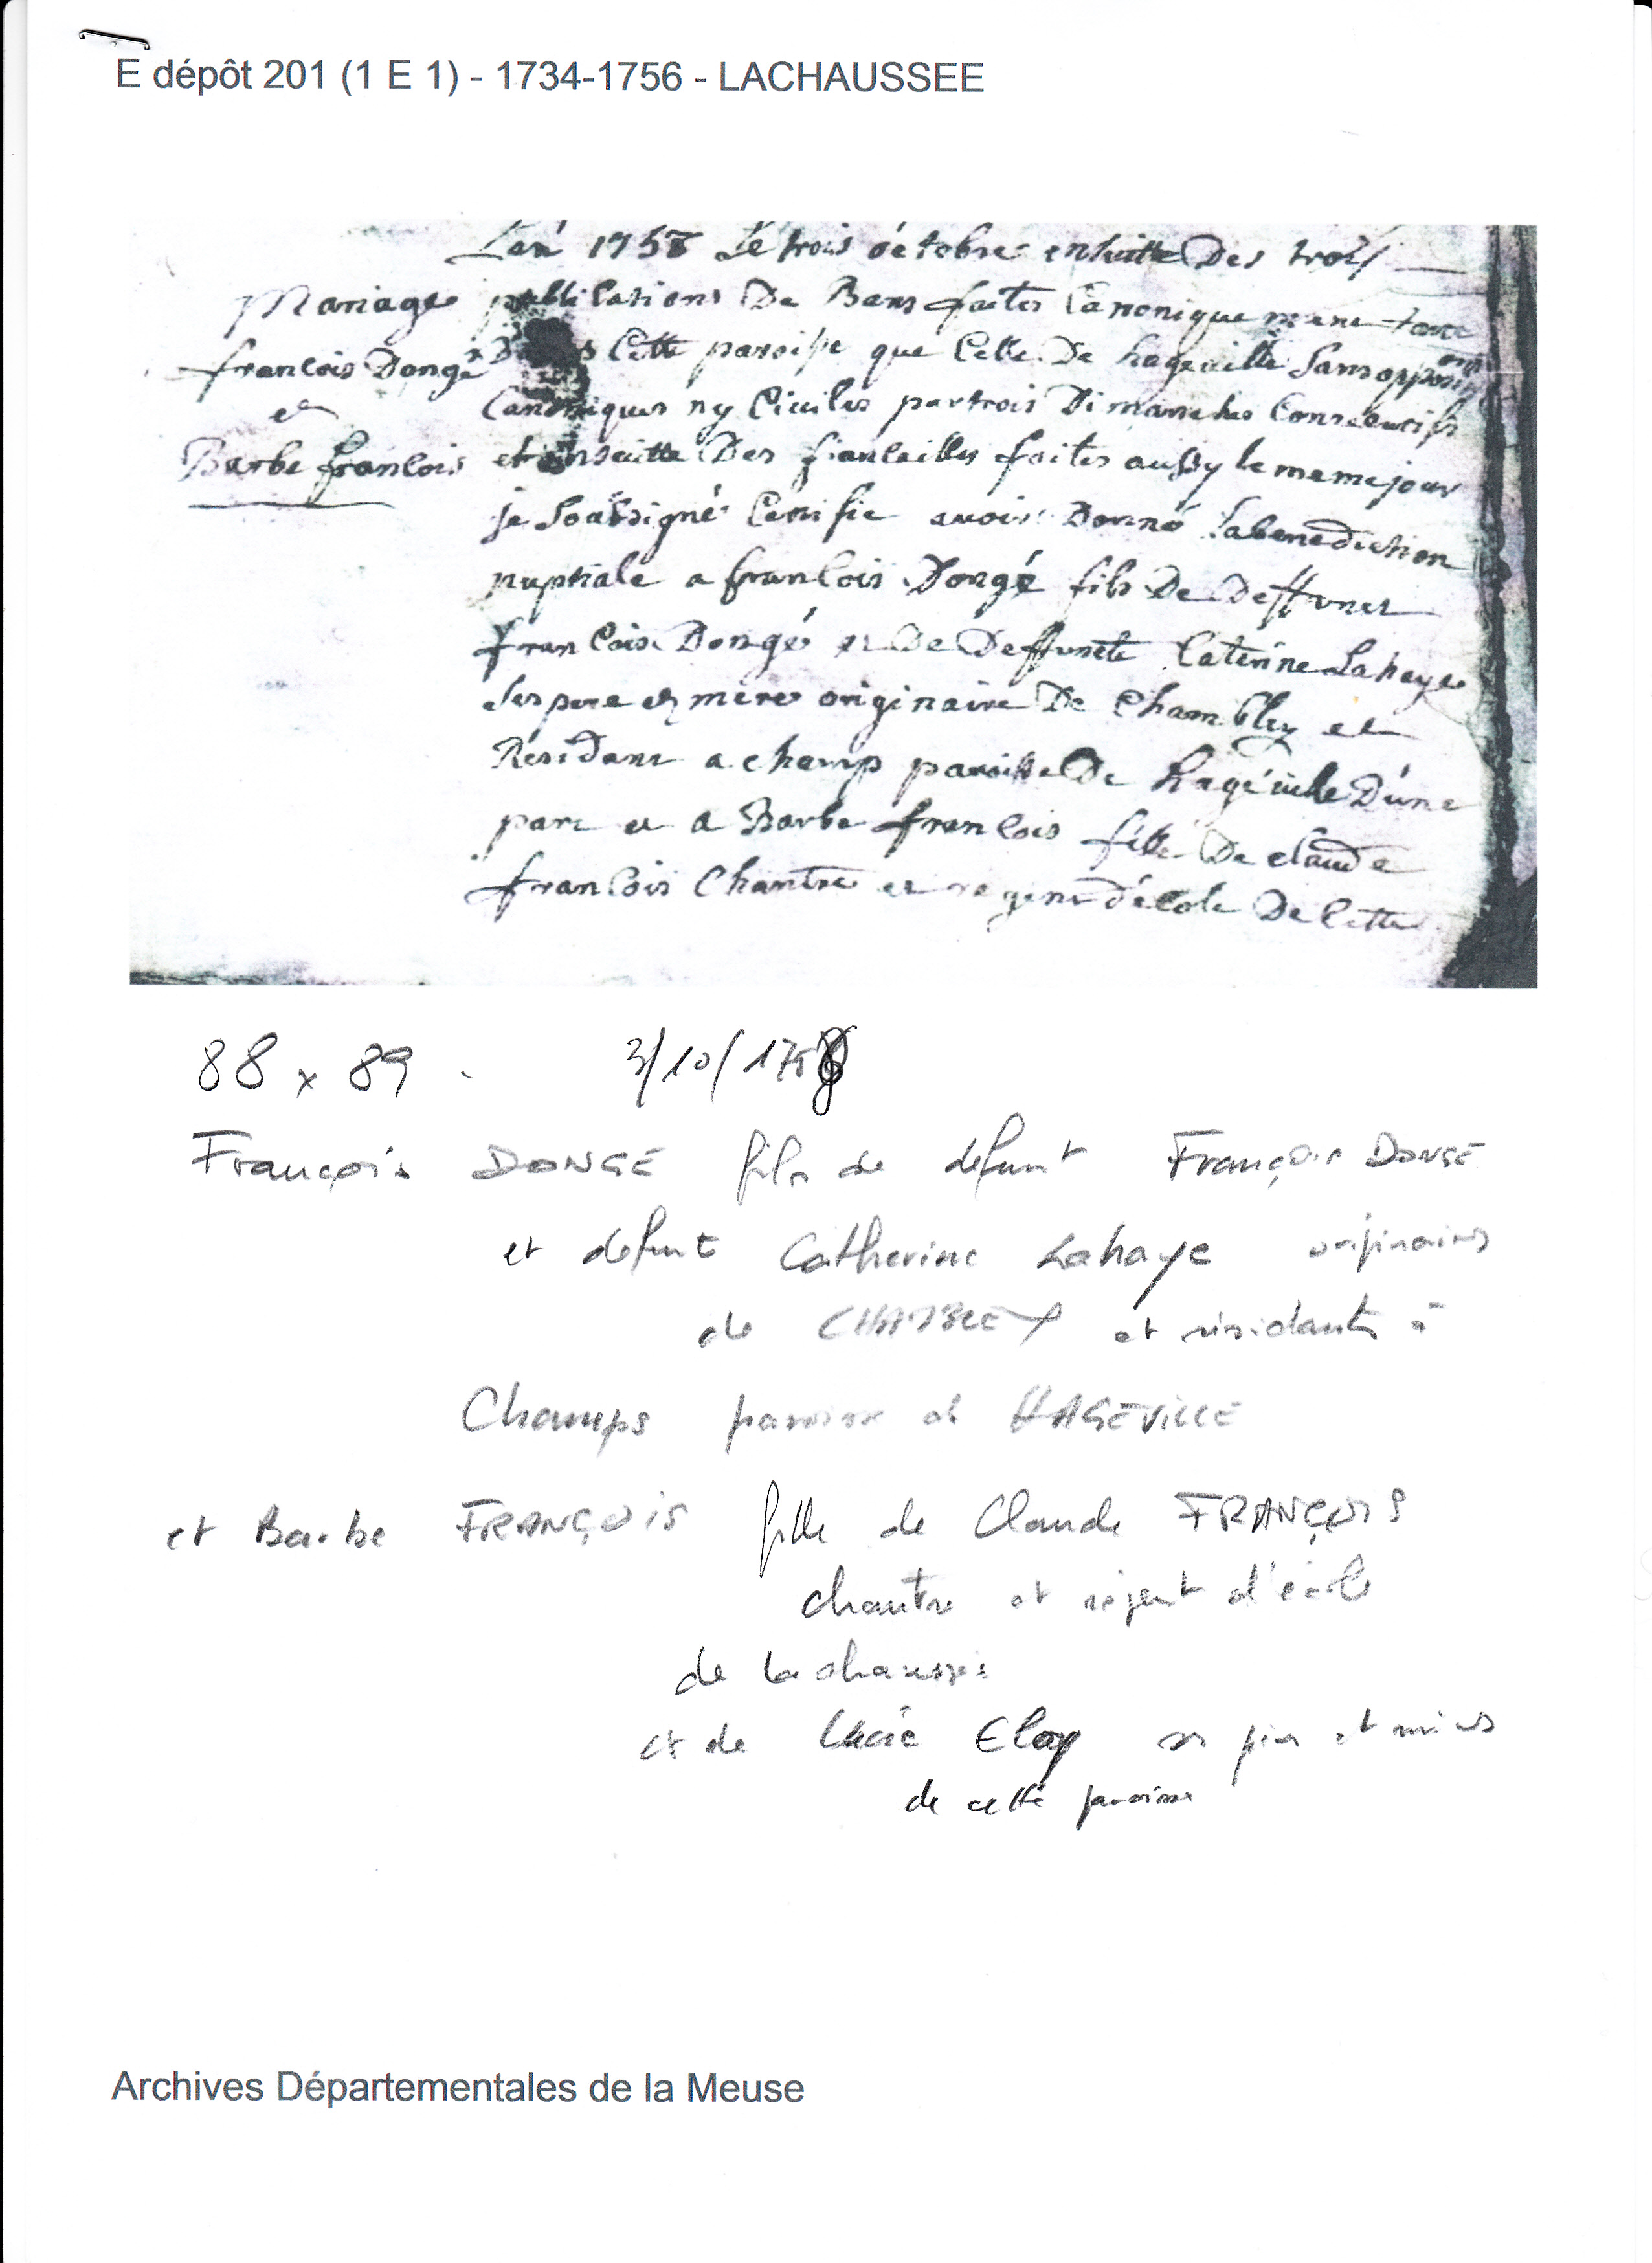 E dépôt 201 (1 E 1) - 1734-1756 - LACHAUSSEE
Lan 175 Le trois octobre ensuitte Des trois
Mariage
francois Dongé
et
Barbe francois
publications De Bans faites Canoniquement tant
Dans Cette paroisse que Celle De hageville Sans oppositions
Canoniques ny Civiles par trois Dimanches Consecutifs
et ensuitte Des fiancailles faites aussy le meme jour
je Soussigné Certifie avoir Donné la benediction
nuptiale a francois Dongé fils De Deffunct
francois Dongé et De Deffuncte Caterine Lahaye
Ses pere et mere originaire De Chambley et
Résidant a champ paroisse De hagéville D'une
part et a Barbe francois fille De claude
francois Chantre et regent d'école De Cette
88 x 89 . 3/10/175
François DONGE fils de defunt François DONGE
et defunte Catherine Lahaye originaires
de CHAMBLEY et résidants à
Champs paroisse de HAGEVILLE
et Barbe FRANÇOIS fille de Claude FRANÇOIS
chantre et régent d'école
de Lachaussée
et de Lucie Eloy ses père et mères
de cette paroisse
Archives Départementales de la Meuse